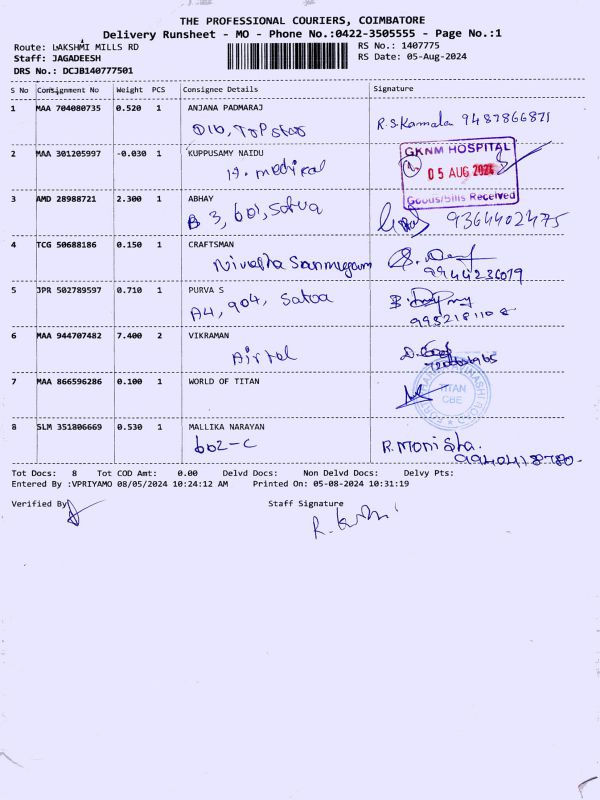 THE PROFESSIONAL COURIERS, COIMBATORE
Delivery Runsheet - MO - Phone No.:0422-3505555 - Page No.:1
Route: LAKSHMI MILLS RD RS No.: 1407775
Staff: JAGADEESH RS Date: 05-Aug-2024
DRS No.: DCJB140777501
S No Consignment No Weight PCS Consignee Details Signature
1 MAA 704080735 0.520 1 ANJANA PADMARAJ
D10, Topstar R.S.Kamala 9487866871
2 MAA 301205997 -0.030 1 KUPPUSAMY NAIDU
H. medical
GKNM HOSPITAL
05 AUG 2024
Goods/Bills Received
3 AMD 28988721 2.300 1 ABHAY
B 3, 601, Satva 9364402475
4 TCG 50688186 0.150 1 CRAFTSMAN
Nivastha Sanmugam
9944236079
5 JPR 502789597 0.710 1 PURVA S
A4, 904, Satva
6 MAA 944707482 7.400 2 VIKRAMAN
Airtel
7 MAA 866596286 0.100 1 WORLD OF TITAN
TITAN
CBE
8 SLM 351806669 0.530 1 MALLIKA NARAYAN
602-C R.Monisha.
9940418780-
Tot Docs: 8 Tot COD Amt: 0.00 Delvd Docs: Non Delvd Docs: Delvy Pts:
Entered By :VPRIYAMO 08/05/2024 10:24:12 AM Printed On: 05-08-2024 10:31:19
Verified By Staff Signature